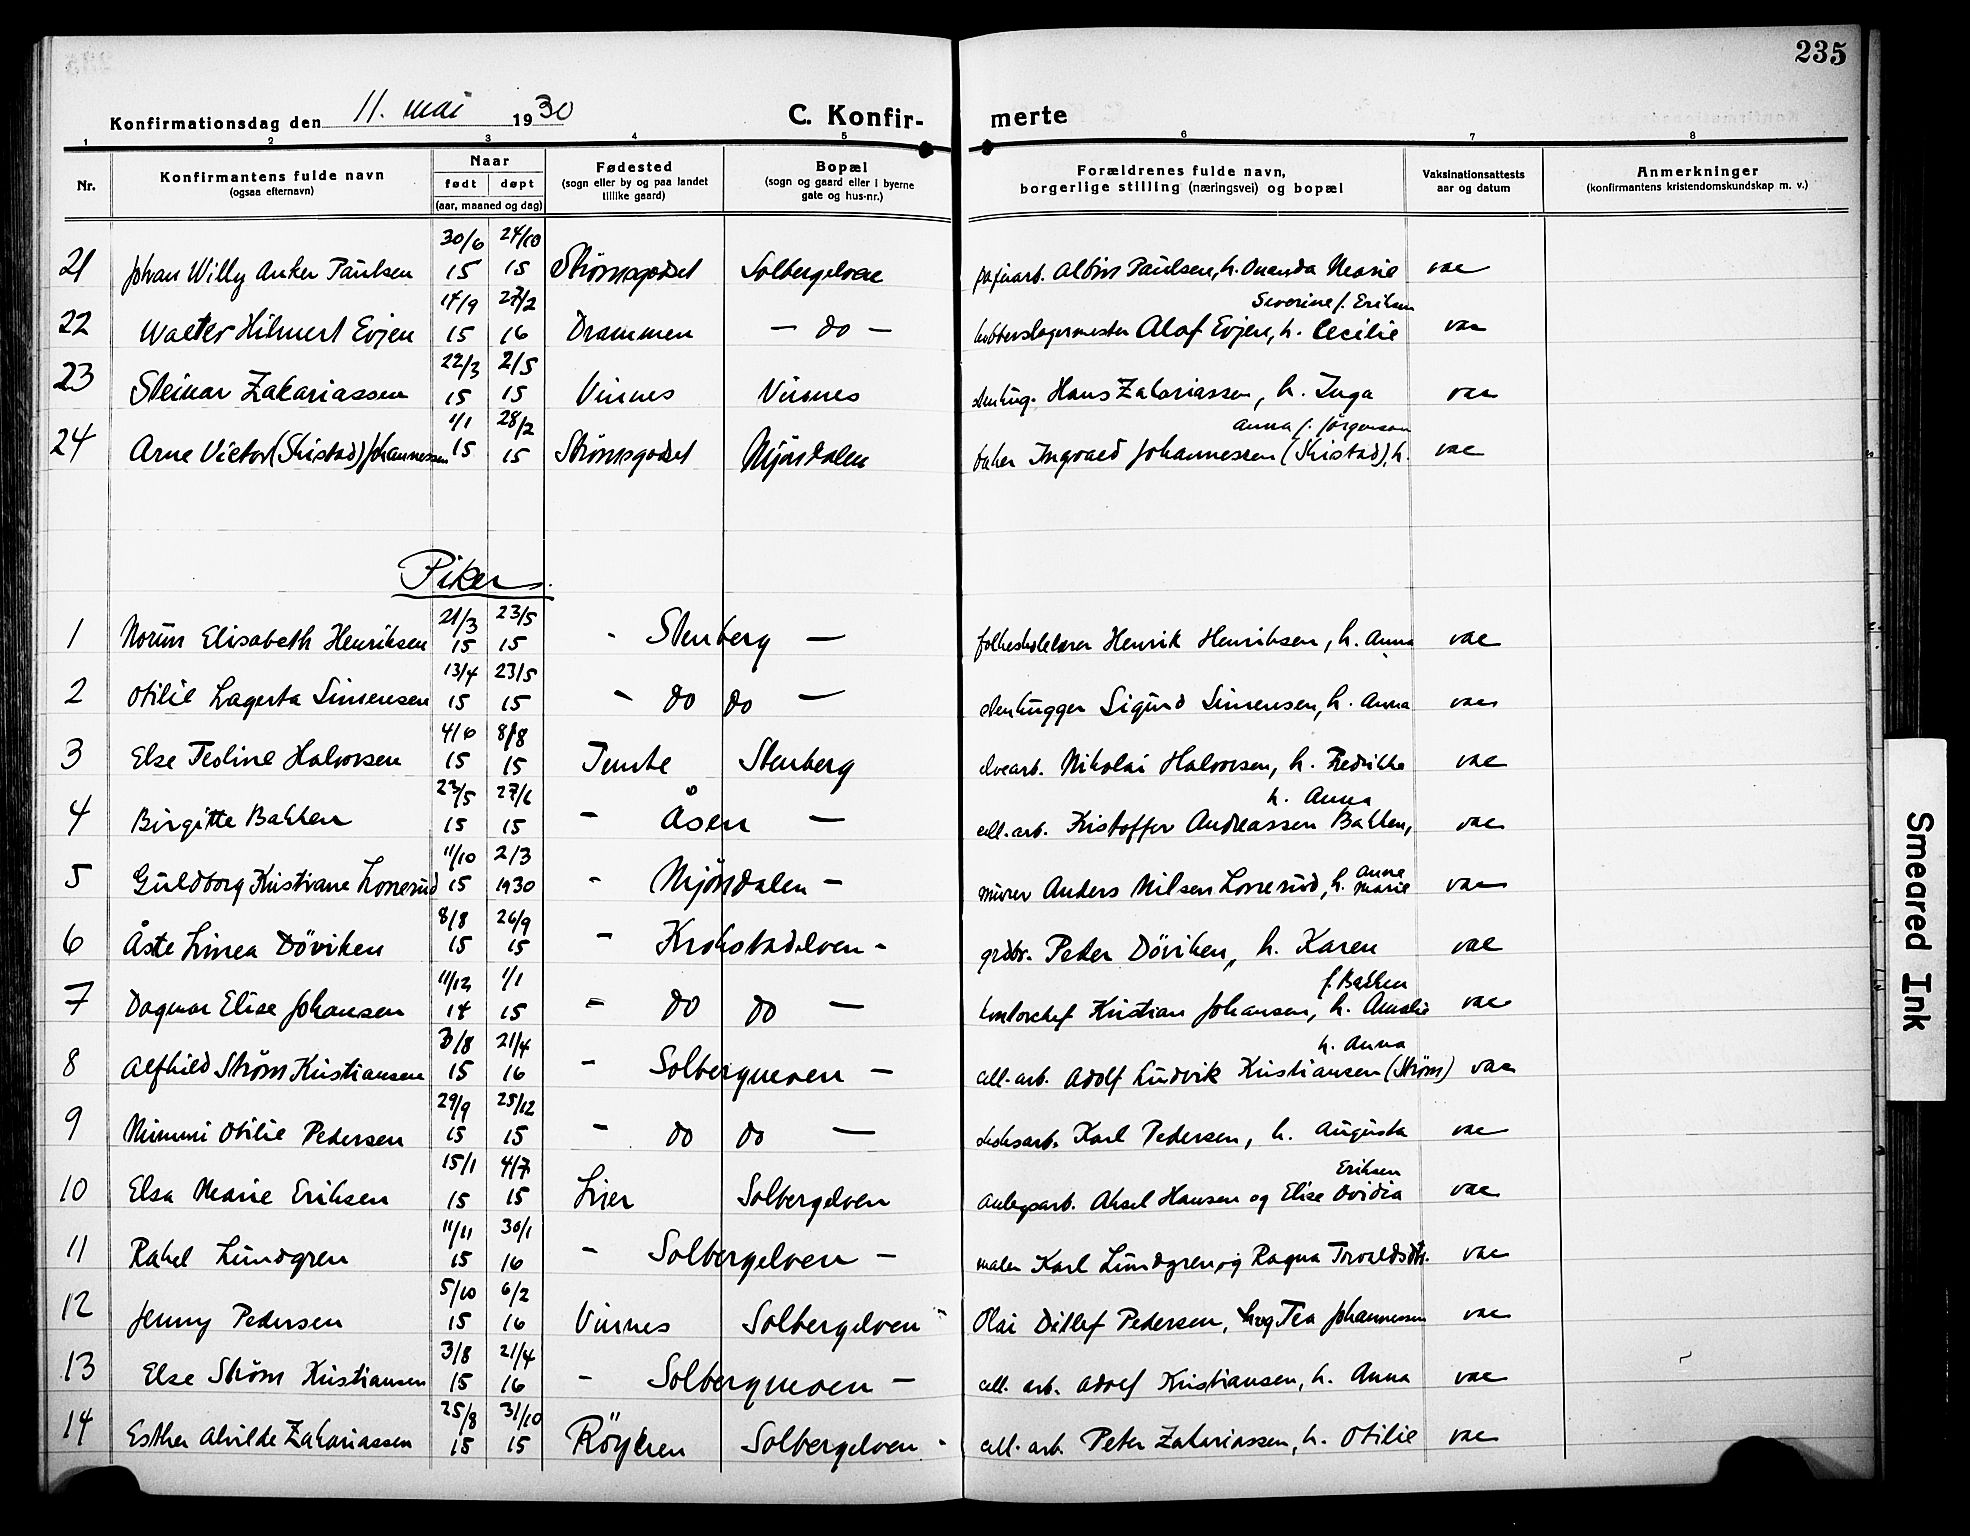 235
Konfirmationsdag den 11. mai 1930 C. Konfirmerte
1 2 3 4 5 6 7 8
Nr. Konfirmantens fulde navn (ogsaa efternavn) Naar født døpt (aar, maaned og dag) Fødested (sogn eller by og paa landet tillike gaard) Bopæl (sogn og gaard eller i byerne gate og hus-nr.) Forældrenes fulde navn, borgerlige stilling (næringsvei) og bopæl Vaksinationsattests aar og datum Anmerkninger (konfirmantens kristendomskundskap m. v.)
30/6 24/10
21 Johan Willy Anker Paulsen 15 15 Strømsgodset Solbergelven papirarb. Albin Paulsen, h. Amanda Marie vac
14/9 27/2 Severine f. Eriksen
22 Walter Hilmert Evjen 15 16 Drammen - do - kobberslagermester Alaf Evjen, h. Cecilie vac
22/3 2/5
23 Steinar Zakariassen 15 15 Virnes Virnes stenhug. Hans Zakariassen, h. Inga vac
1/1 28/2 Anna f. Jørgensen
24 Arne Victor (Skistad) Johannessen 15 15 Strømsgodset Mjöndalen baker Ingvald Johannessen (Skistad), h. vac
Piker.
21/3 23/5
1 Norun Elisabeth Henriksen 15 15 - Stenberg - folkeskolelærer Henrik Henriksen, h. Anna vac
13/4 23/5
2 Otilie Lagerta Simensen 15 15 - do do - stenhugger Sigurd Simensen, h. Anna vac
4/6 8/8
3 Else Teoline Halvorsen 15 15 Tembe Stenberg elvearb. Nikolai Halvorsen, h. Fredrikke vac
22/5 27/6 h. Anna
4 Birgitte Bakken 15 15 - Åsen - cell. arb. Kristoffer Andreassen Bakken, vac
11/10 2/3 Anne
5 Guldborg Kristiane Lonerud 15 1930 - Mjöndalen - murer Anders Nilsen Lonerud, h. Marie vac
8/8 26/9
6 Åste Linea Döviken 15 15 - Krokstadelven - grdbr. Peder Döviken, h. Karen vac
11/12 1/1 f. Bakken
7 Dagmar Elise Johansen 14 15 - do do - kontorchef Kristian Johansen, h. Amalie vac
3/8 21/4 h. Anna
8 Alfhild Strøm Kristiansen 15 16 - Solbergmoen - cell. arb. Adolf Ludvik Kristiansen (Strøm) vac
29/9 25/12
9 Mimmi Otilie Pedersen 15 15 - do do - Karl Pedersen, h. Augusta vac
15/1 4/7 Eriksen
10 Elsa Marie Eriksen 15 15 Lier Solbergelven anlegsarb. Aksel Hansen og Elise Ovidia vac
11/11 30/1
11 Rakel Lundgren 15 16 - Solbergelven - maler Karl Lundgren og Ragna Torvaldsdtr. vac
5/10 6/2
12 Jenny Pedersen 15 16 Virnes Solbergelven Olai Ditlef Pedersen, og Tea Johannessen vac
3/8 21/4
13 Else Strøm Kristiansen 15 16 - Solbergmoen - cell. arb. Adolf Kristiansen, h. Anna vac
25/8 31/10
14 Esther Alvilde Zakariassen 15 15 Röyken Solbergelven cell. arb. Peter Zakariassen, h. Otilie vac
Smeared Ink